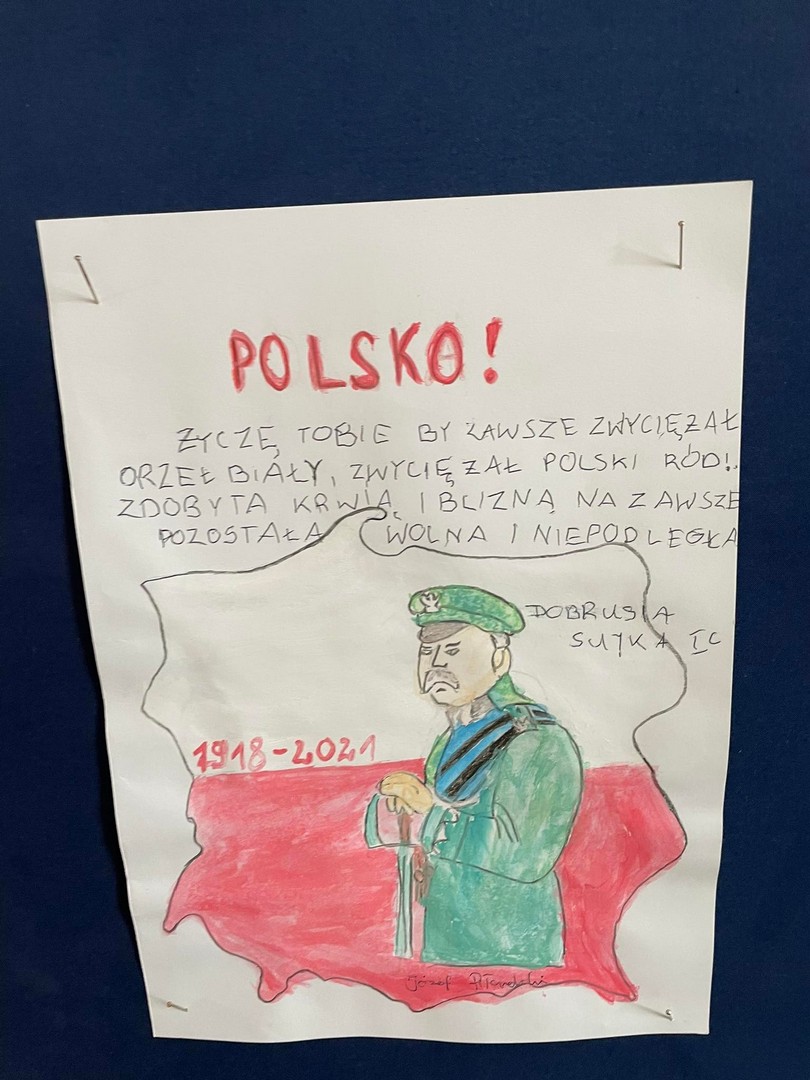 POLSKO!
ŻYCZĘ TOBIE BY ZAWSZE ZWYCIĘŻAŁ
ORZEŁ BIAŁY, ZWYCIĘŻAŁ POLSKI RÓD!
ZDOBYTA KRWIĄ I BLIZNĄ NA ZAWSZE
POZOSTAŁA WOLNA I NIEPODLEGŁA
DOBRUSIA
SUJKA IC
1918-2021
Józef Piłsudski